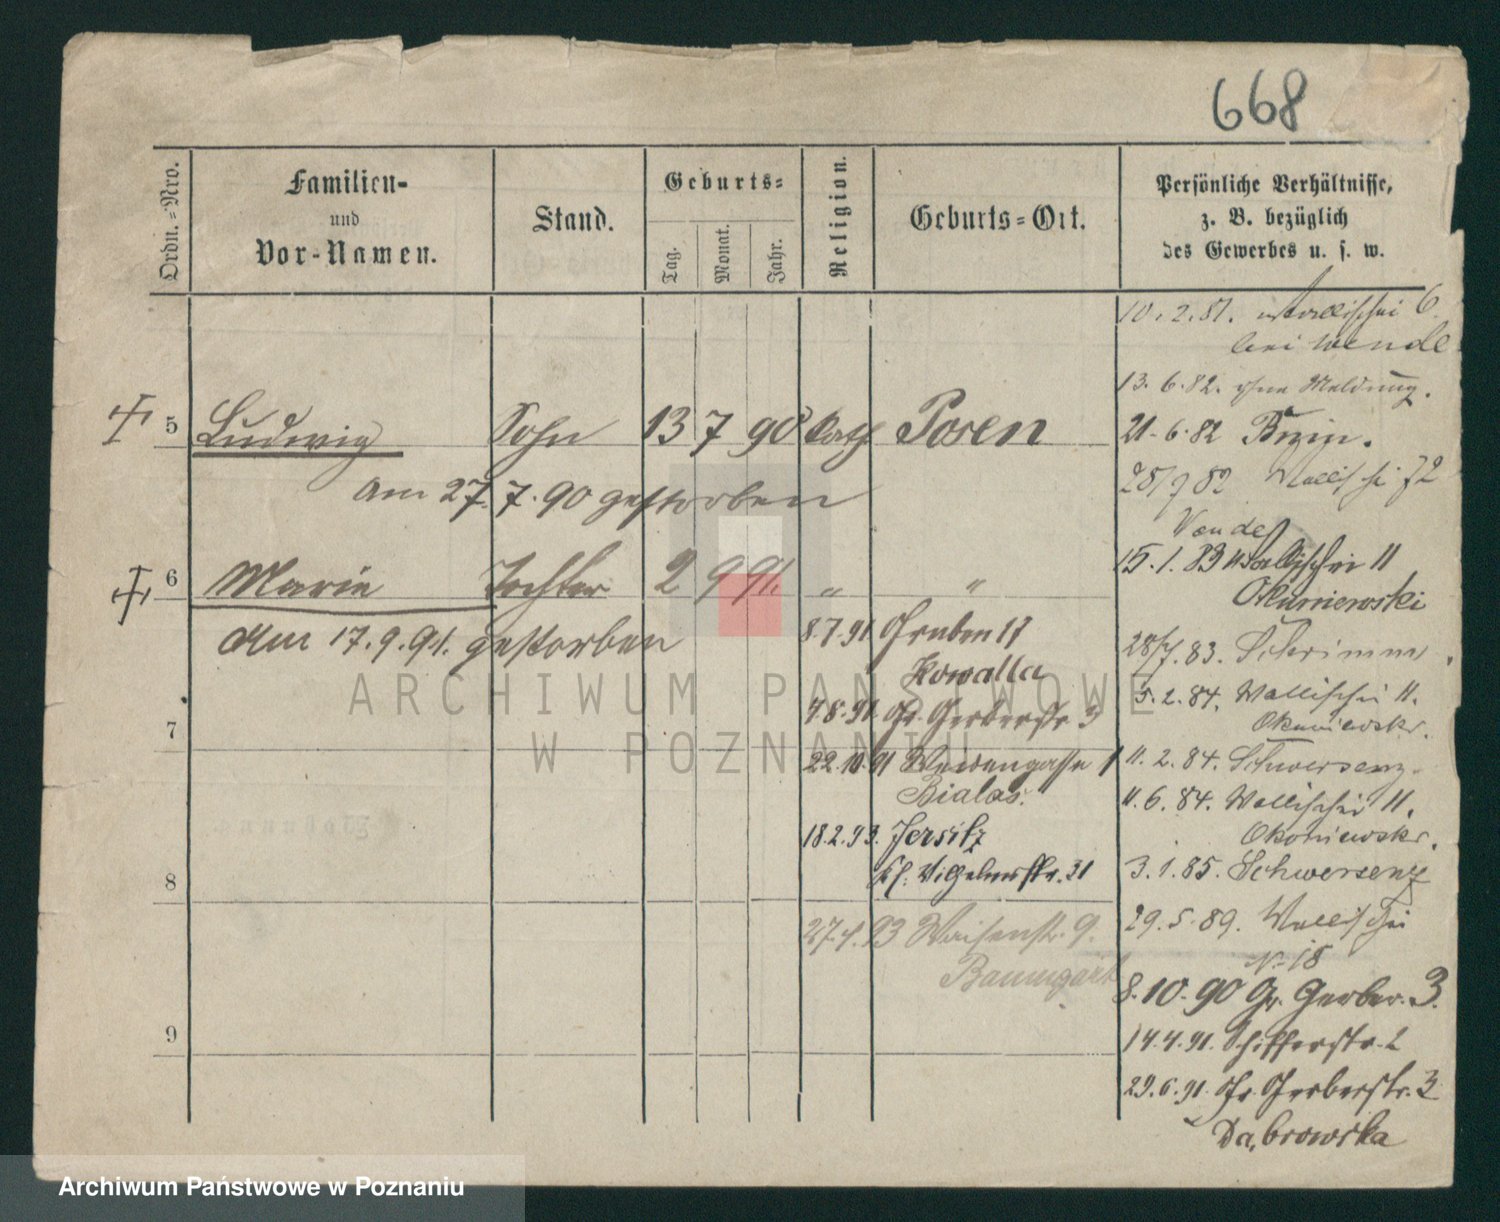 668
Ordn.=Nro.
Familien-
und
Vor-Namen.
Stand.
Geburts=
Tag.
Monat.
Jahr.
Religion.
Geburts=Ort.
Persönliche Verhältnisse,
z. B. bezüglich
des Gewerbes u. s. w.
5 Ludwig Sohn 13 7 90 Kath Posen
am 27.7.90 gestorben
6 Marie Tochter 2 9 91. " "
Am 17.9.91. gestorben
7
8
9
8.7.91 Gruben 17
Kowalla
4.8.91 Gr. Gerberstr 3
22.10.91 Waisengasse 1
Bialas.
18.2.93. Jersitz
Kf. Wilhelmstr. 31
93 Waisenstr. 9.
Baumgart
10.2.81. Wallischei 6.
bei Wende
13.6.82. ohne Meldung.
21.6.82 Bnin.
28/9 82 Wallischei 72
Wende
15.1.83 Wallischei 11
Okuniewski
28/7.83. Schrimm.
5.2.84. Wallischei 11.
Okuniewski.
11.2.84. Schwersenz.
11.6.84. Wallischei 11.
Okoniewski.
3.1.85. Schwersenz
29.5.89. Wallischei
N. 18
8.10.90 Gr. Gerber. 3.
14.4.91. Schifferstr. 2
29.6.91. Gr. Gerberstr. 3
Dąbrowska
ARCHIWUM PAŃSTWOWE
W POZNANIU
Archiwum Państwowe w Poznaniu